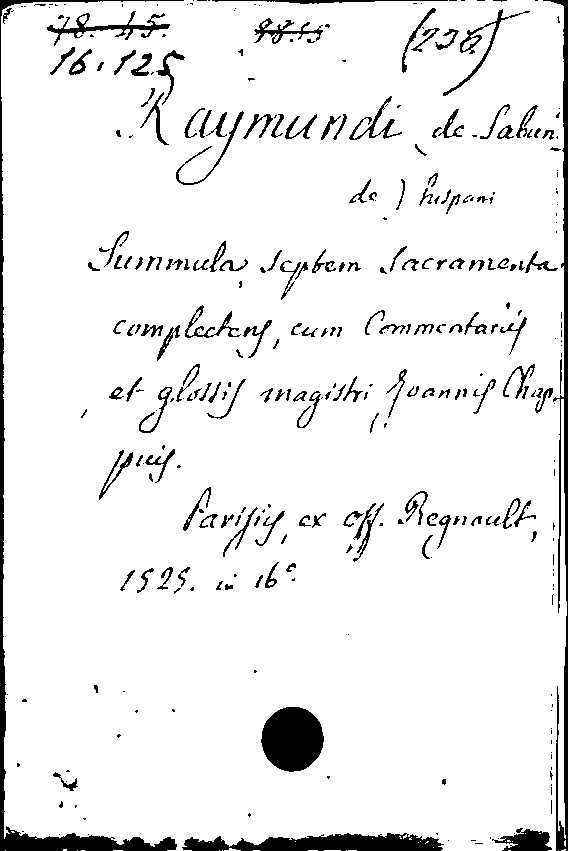 78. 45. 98.15 (236)
16.125
Raymundi de Sabun-
de) hispani
Summula septem sacramenta
complectens, cum Commentariis
et glossis magistri Joannis Chap-
puis.
Parisiis, ex off. Regnault,
1525. in 16°.